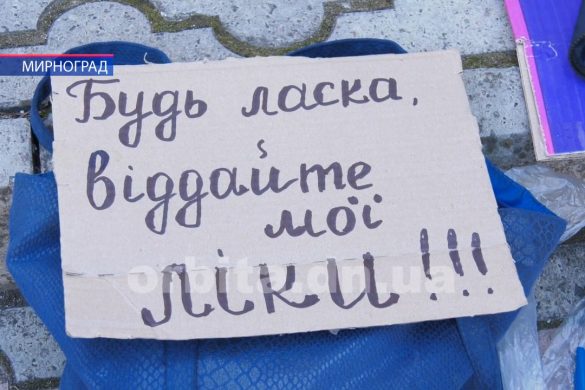 МИРНОГРАД
Будь ласка,
віддайте
мої
ліки!!!
orbita.dn.ua